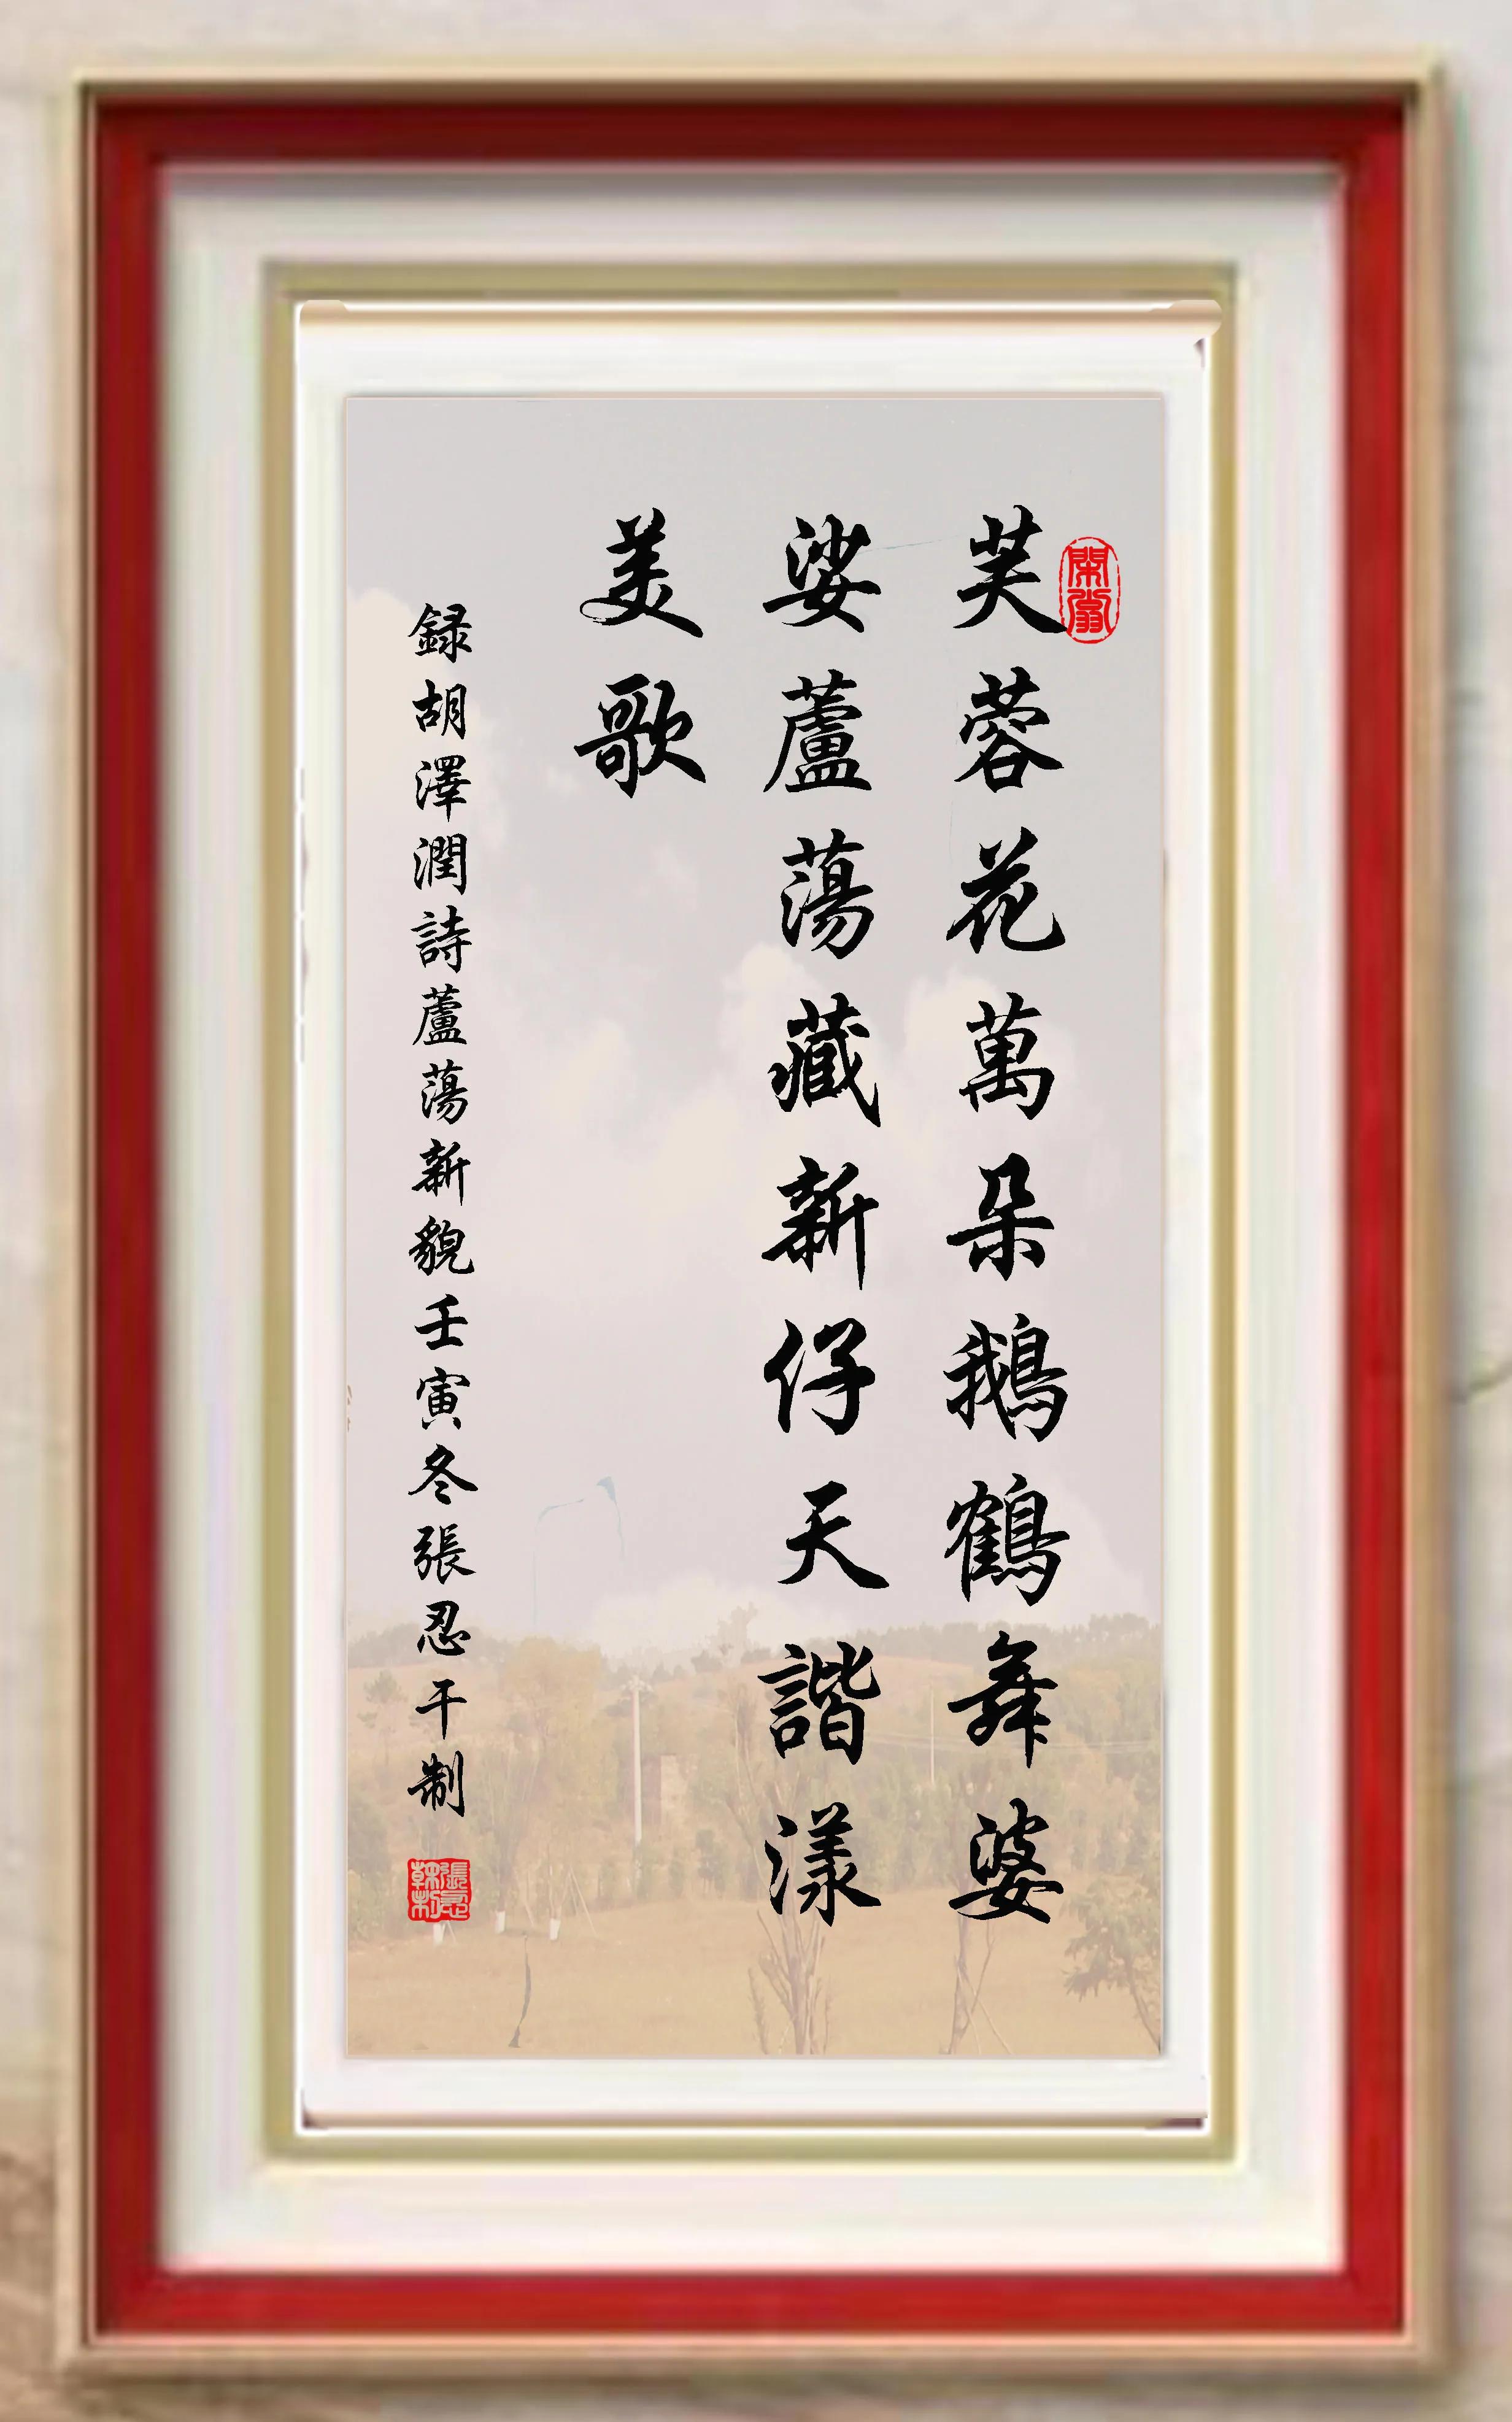 芙蓉花萬朵鵝鶴舞婆
娑蘆蕩藏新仔天諧漾
美歌
録胡澤潤詩蘆蕩新貌壬寅冬張忍干制